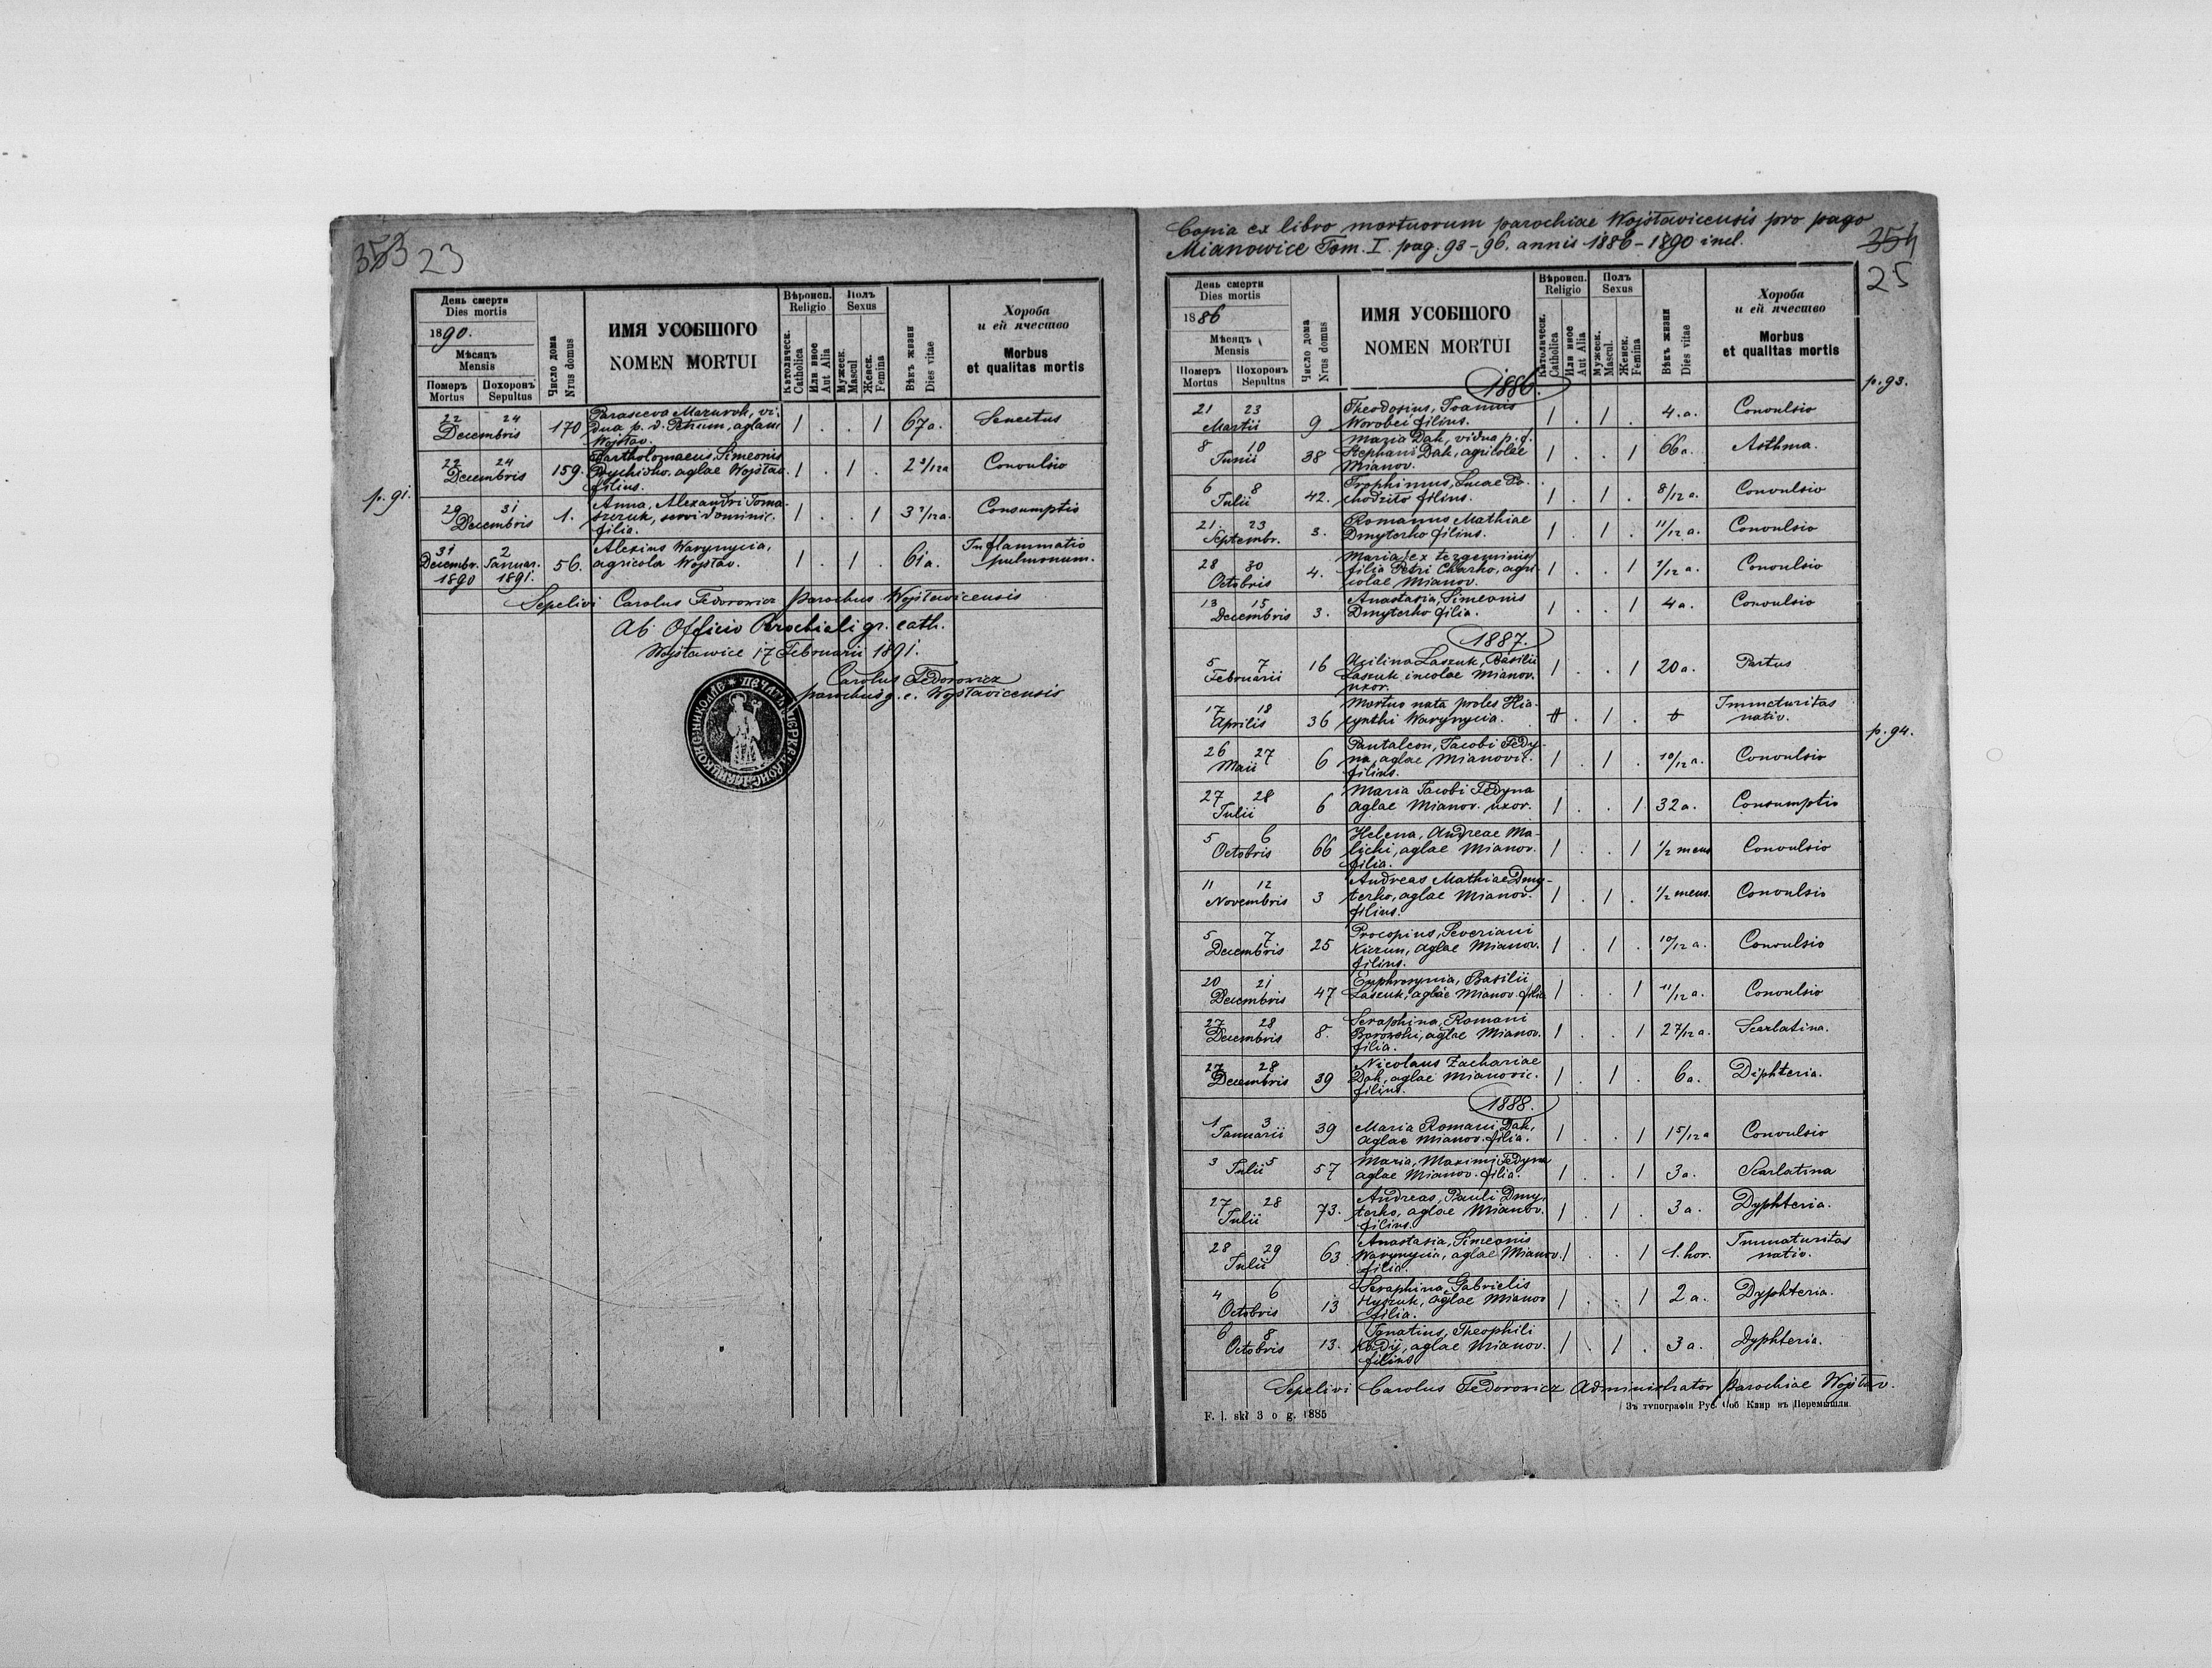 353 23
День смерти
Dies mortis
1890.
Мѣсяцъ
Mensis
Померъ Похоронъ
Mortus Sepultus
Число дома
Nrus domus
ИМЯ УСОБШОГО
NOMEN MORTUI
Вѣроисп.
Religio
Католическ.
Catholica
Или иное
Aut Alia
Полъ
Sexus
Мужеск.
Mascul
Женск.
Femina
Вѣкъ жизни
Dies vitae
Хороба
и ей ячество
Morbus
et qualitas mortis
22 24 Decembris 170 Parasceva Mazurok, vi-
dua p. d. Petrum, aglam
Wojsław. 1 . . 1 67 a. Senectus
22 24 Decembris 159. Bartholomaeus, Simeonis
aglae Wojsław.
filius. 1 . 1 . 2 2/12 a Convulsio
p. 91.
29 31 Decembris 1. Anna, Alexandri Toma-
szczuk, servi dominic.
filia. 1 . . 1 3 2/12 a. Consumptio
31 Decembr. 1890 2 Januar. 1891. 56. Alexius Warynycia,
agricola Wojsław. 1 . 1 . 61 a. Inflammatio
pulmonum.
Sepelivi Carolus Fedorowicz Parochus Wojsławicensis
Ab Officio Parochiali gr. cath.
Wojsławice 17 Februarii 1891.
Carolus Fedorowicz
parochus g. c. Wojsławicensis
Copia ex libro mortuorum parochiae Wojsławicensis pro pago
Mianowice Tom. I. pag. 93-96. annis 1886-1890 incl.
354
25
День смерти
Dies mortis
1886
Мѣсяцъ
Mensis
Померъ Похоронъ
Mortus Sepultus
Число дома
Nrus domus
ИМЯ УСОБШОГО
NOMEN MORTUI
Вѣроисп.
Religio
Католическ.
Catholica
Или иное
Aut Alia
Полъ
Sexus
Мужеск.
Mascul.
Женск.
Femina
Вѣкъ жизни
Dies vitae
Хороба
и ей ячество
Morbus
et qualitas mortis
1886.
p. 93.
21 23 Martii 9 Theodosius, Joannis
Worobei filius. 1 . 1 . 4. a. Convulsio
8 10 Junii 38 Maria Dak, vidua p. d.
Stephani Dak, agricolae
Mianov. 1 . . 1 66 a. Asthma.
6 8 Julii 42. Trophimus, Lucae Po-
chodzilo filius. 1 . 1 . 8/12 a. Convulsio
21. 23 Septembr. 3. Romanus Mathiae
Dmyterko filius. 1 . 1 . 11/12 a. Convulsio
28 30 Octobris 4. Maria (ex tergeminis)
filia Petri Charko, agri-
colae Mianov. 1 . . 1 1/12 a. Convulsio
13 15 Decembris 3. Anastasia, Simeonis
Dmyterko filia. 1 . . 1 4 a. Convulsio
1887.
5 7 Februarii 16 Acilina Laszuk, Basilii
Laszuk incolae Mianov.
uxor. 1 . . 1 20 a. Partus
17 18 Aprilis 36 Mortuo nata proles Hia-
cynthi Warynycia. . 1 . Immaturitas
nativ.
p. 94.
26 27 Maii 6 Pantaleon, Jacobi Fedy-
na, aglae Mianovic.
filius. 1 . 1 . 10/12 a. Convulsio
27 28 Julii 6 Maria Jacobi Fedyna
aglae Mianov. uxor. 1 . . 1 32 a. Consumptio
5 6 Octobris 66 Helena, Andreae Ma-
lichi, aglae Mianov.
filia. 1 . . 1 1/2 mens Convulsio
11 12 Novembris 3 Andreas Mathiae Dmy-
terko, aglae Mianov.
filius. 1 . 1 . 1/2 mens. Convulsio
5 7 Decembris 25 Procopius, Severiani
Kiczun, aglae Mianov.
filius. 1 . 1 . 10/12 a. Convulsio
20 21 Decembris 47 Euphrosynia, Basilii
Laszuk, aglae Mianov. filia 1 . . 1 11/12 a. Convulsio
27 28 Decembris 8. Seraphina, Romani
Borowski, aglae Mianov.
filia. 1 . . 1 2 7/12 a. Scarlatina.
27 28 Decembris 39 Nicolaus Zachariae
Dak, aglae Mianovic.
filius. 1 . 1 . 6 a. Diphteria.
1888.
1 3 Januarii 39 Maria Romani Dak,
aglae Mianov. filia. 1 . . 1 1 5/12 a Convulsio
3 5 Julii 57 Maria, Maximi Fedyna
aglae Mianov. filia. 1 . . 1 3 a. Scarlatina
27 28 Julii 73. Andreas, Pauli Dmy-
terko, aglae Mianov.
filius. 1 . 1 . 3 a. Dyphteria.
28 29 Julii 63 Anastasia, Simeonis
Warynycia, aglae Mianov.
filia. 1 . . 1 1. hor. Immaturitas
nativ.
4 6 Octobris 13 Seraphina, Gabrielis
aglae Mianov
filia. 1 . . 1 2 a. Dyphteria.
6 8 Octobris 13. Ignatius, Theophili
aglae Mianov.
filius 1 . 1 . 3 a. Dyphteria.
Sepelivi Carolus Fedorowicz Administrator parochiae Wojsław.
F. l. skł 3 o g. 1885
Зъ типографіи Рус. Соб Клир въ Перемышли.